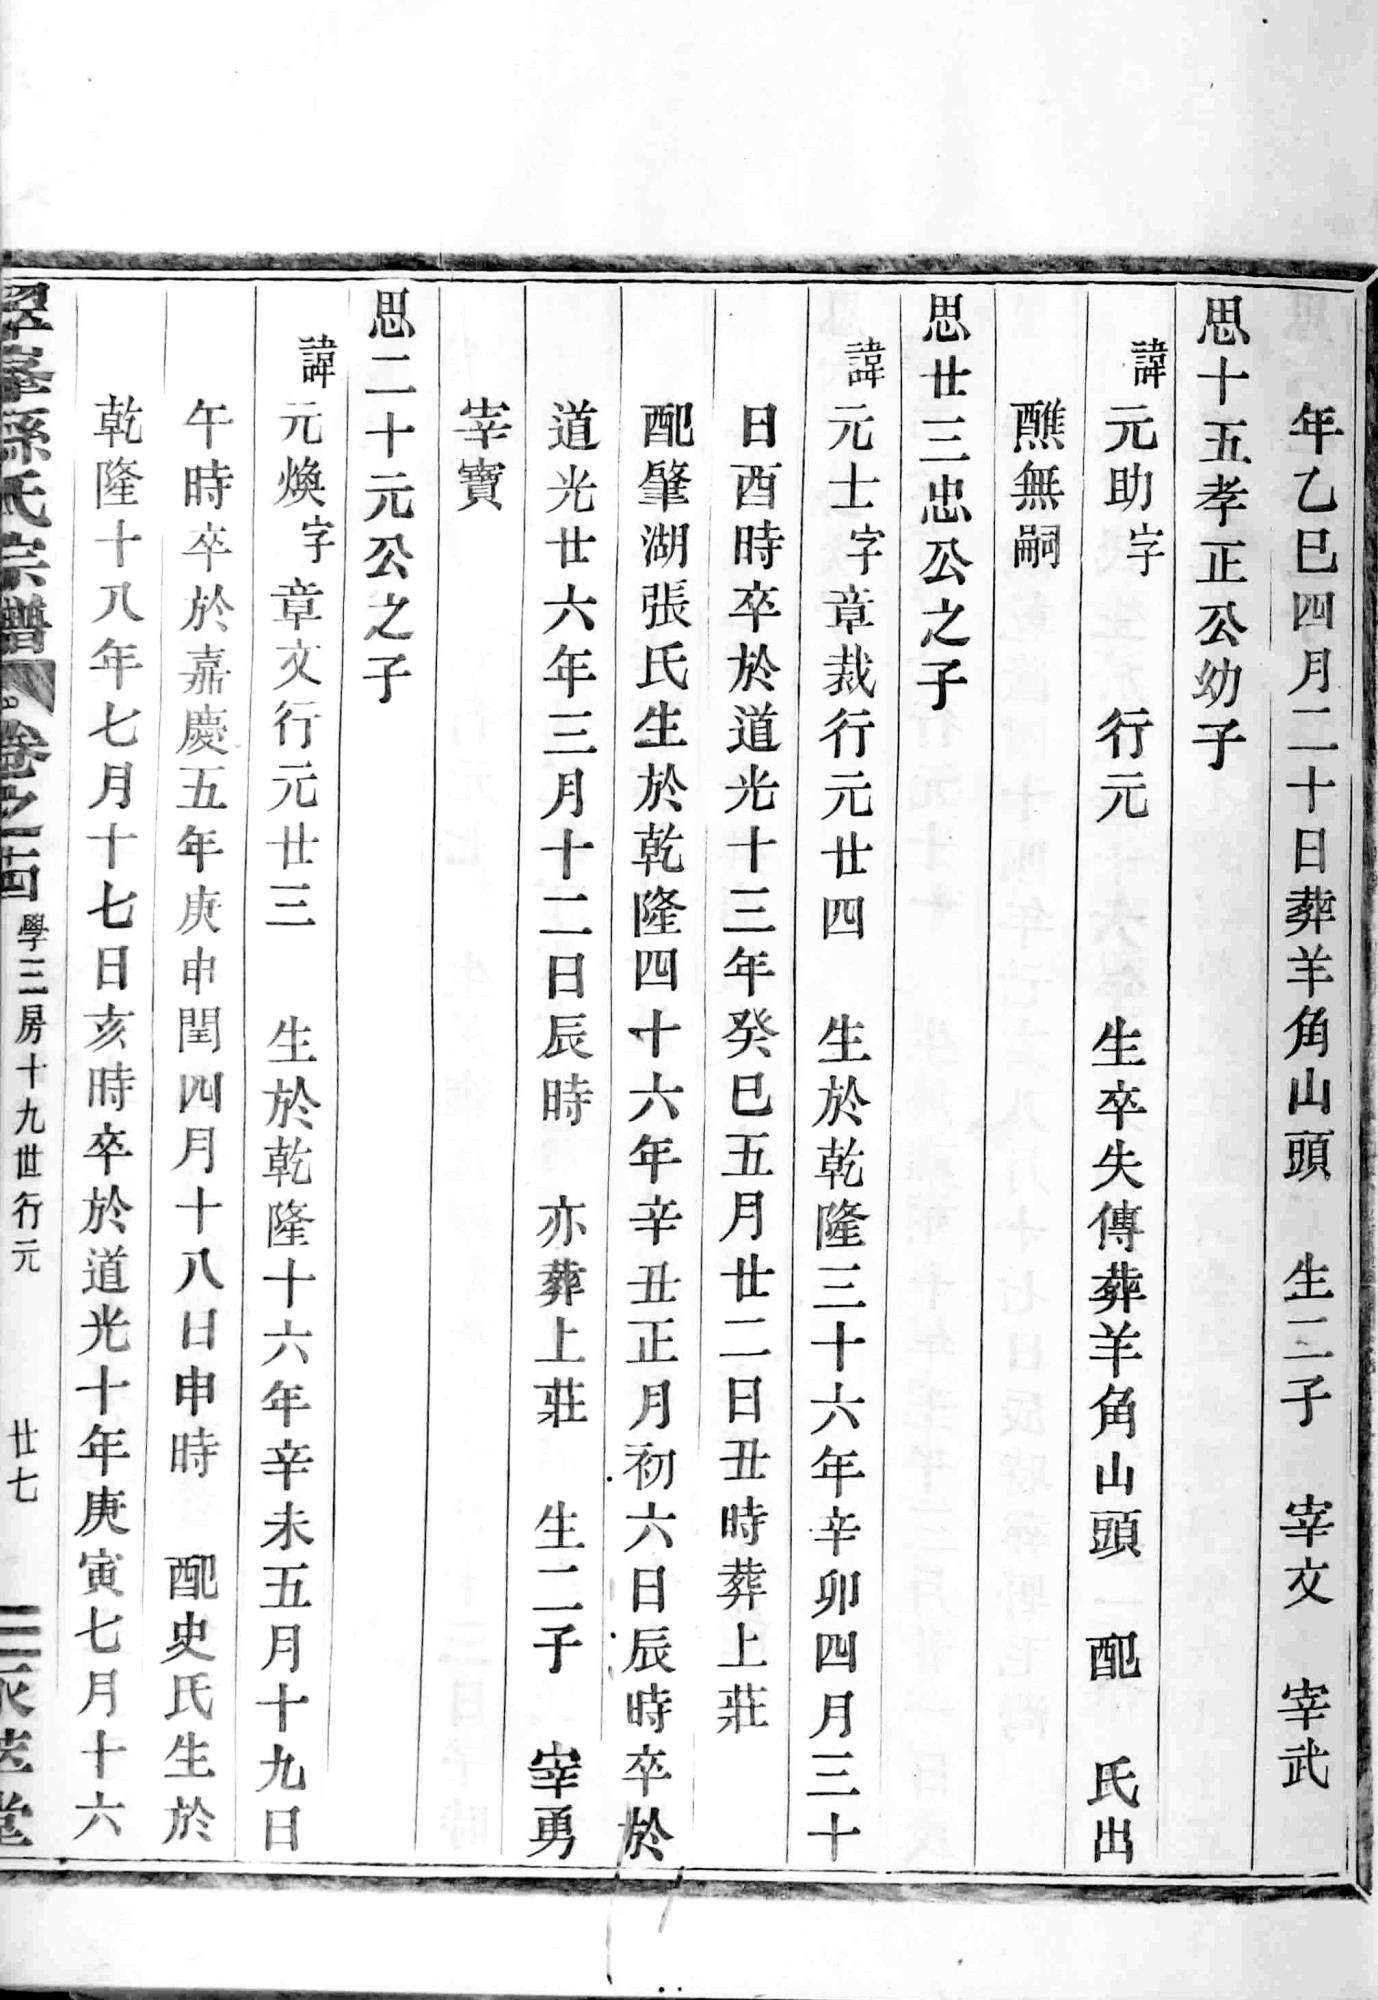 年乙巳四月二十日葬羊角山頭 生二子 宰文 宰武
思十五孝正公幼子
諱元助字 行元 生卒失傳葬羊角山頭一配 氏出
醮無嗣
思廿三忠公之子
諱元士字章裁行元廿四 生於乾隆三十六年辛卯四月三十
日酉時卒於道光十三年癸巳五月廿二日丑時葬上莊
配肇湖張氏生於乾隆四十六年辛丑正月初六日辰時卒於
道光廿六年三月十二日辰時 亦葬上莊 生二子 宰勇
宰寶
思二十元公之子
諱元煥字章文行元廿三 生於乾隆十六年辛未五月十九日
午時卒於嘉慶五年庚申閏四月十八日申時 配史氏生於
乾隆十八年七月十七日亥時卒於道光十年庚寅七月十六
孫氏宗譜 卷之十四 學三房十九世行元 廿七 堂